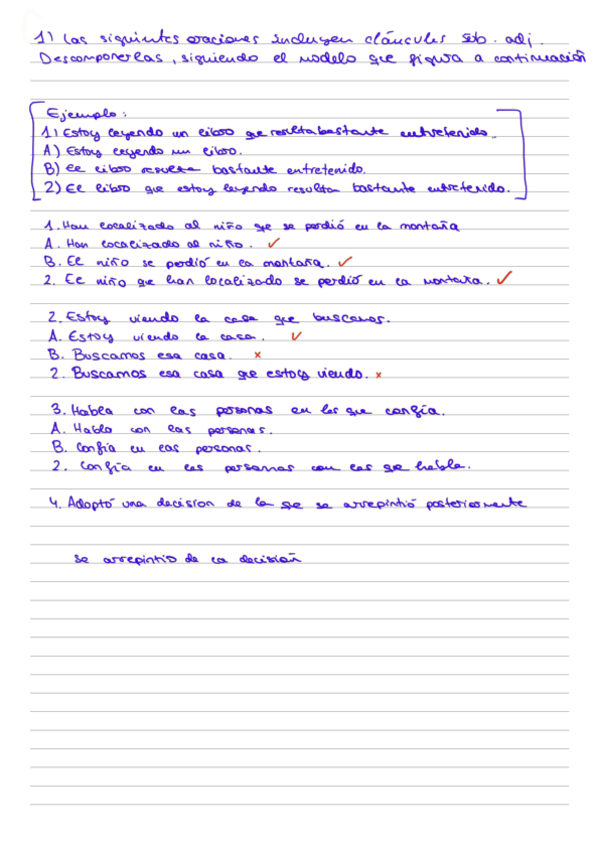 1) Las siguientes oraciones incluyen cláusulas sub. adj.
Descomponerlas, siguiendo el modelo que figura a continuación
Ejemplo:
1) Estoy leyendo un libro que resulta bastante entretenido.
A) Estoy leyendo un libro.
B) El libro resulta bastante entretenido.
2) El libro que estoy leyendo resulta bastante entretenido.
1. Han localizado al niño que se perdió en la montaña
A. Han localizado al niño. ✓
B. El niño se perdió en la montaña. ✓
2. El niño que han localizado se perdió en la montaña. ✓
2. Estoy viendo la casa que buscamos.
A. Estoy viendo la casa. ✓
B. Buscamos esa casa. x
2. Buscamos esa casa que estoy viendo. x
3. Habla con las personas en las que confía.
A. Habla con las personas.
B. Confía en las personas.
2. Confía en las personas con las que habla.
4. Adoptó una decisión de la que se arrepintió posteriormente
se arrepintió de la decisión